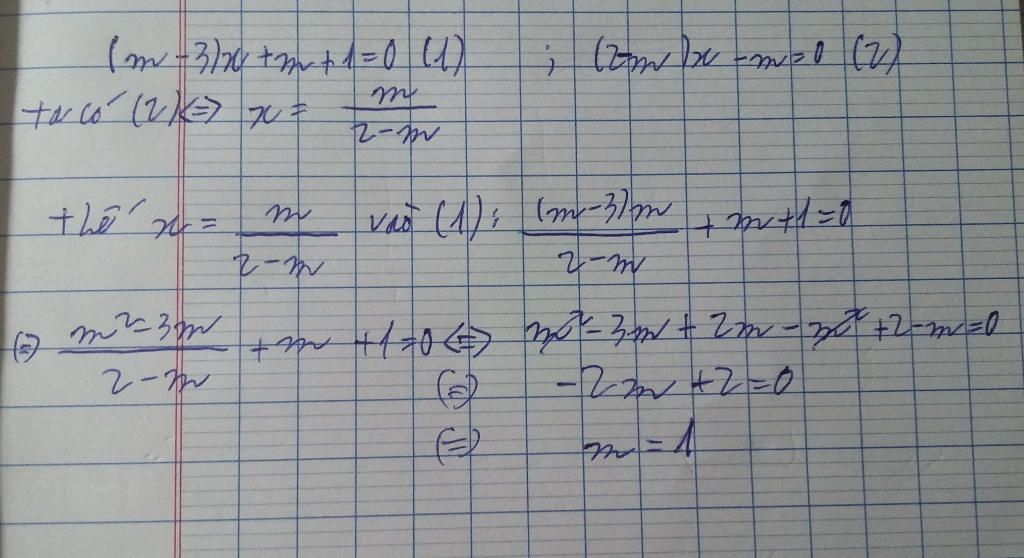 (m-3)x+m+1=0 (1) ; (2-m)x-m=0 (2)
ta có (2)⇔ x = m/(2-m)
+Thế x = m/(2-m) vào (1): (m-3)m/(2-m) + m+1=0
⇔ (m²-3m)/(2-m) + m +1=0 ⇔ m²-3m+2m-m²+2-m=0
⇔ -2m+2=0
⇔ m=1